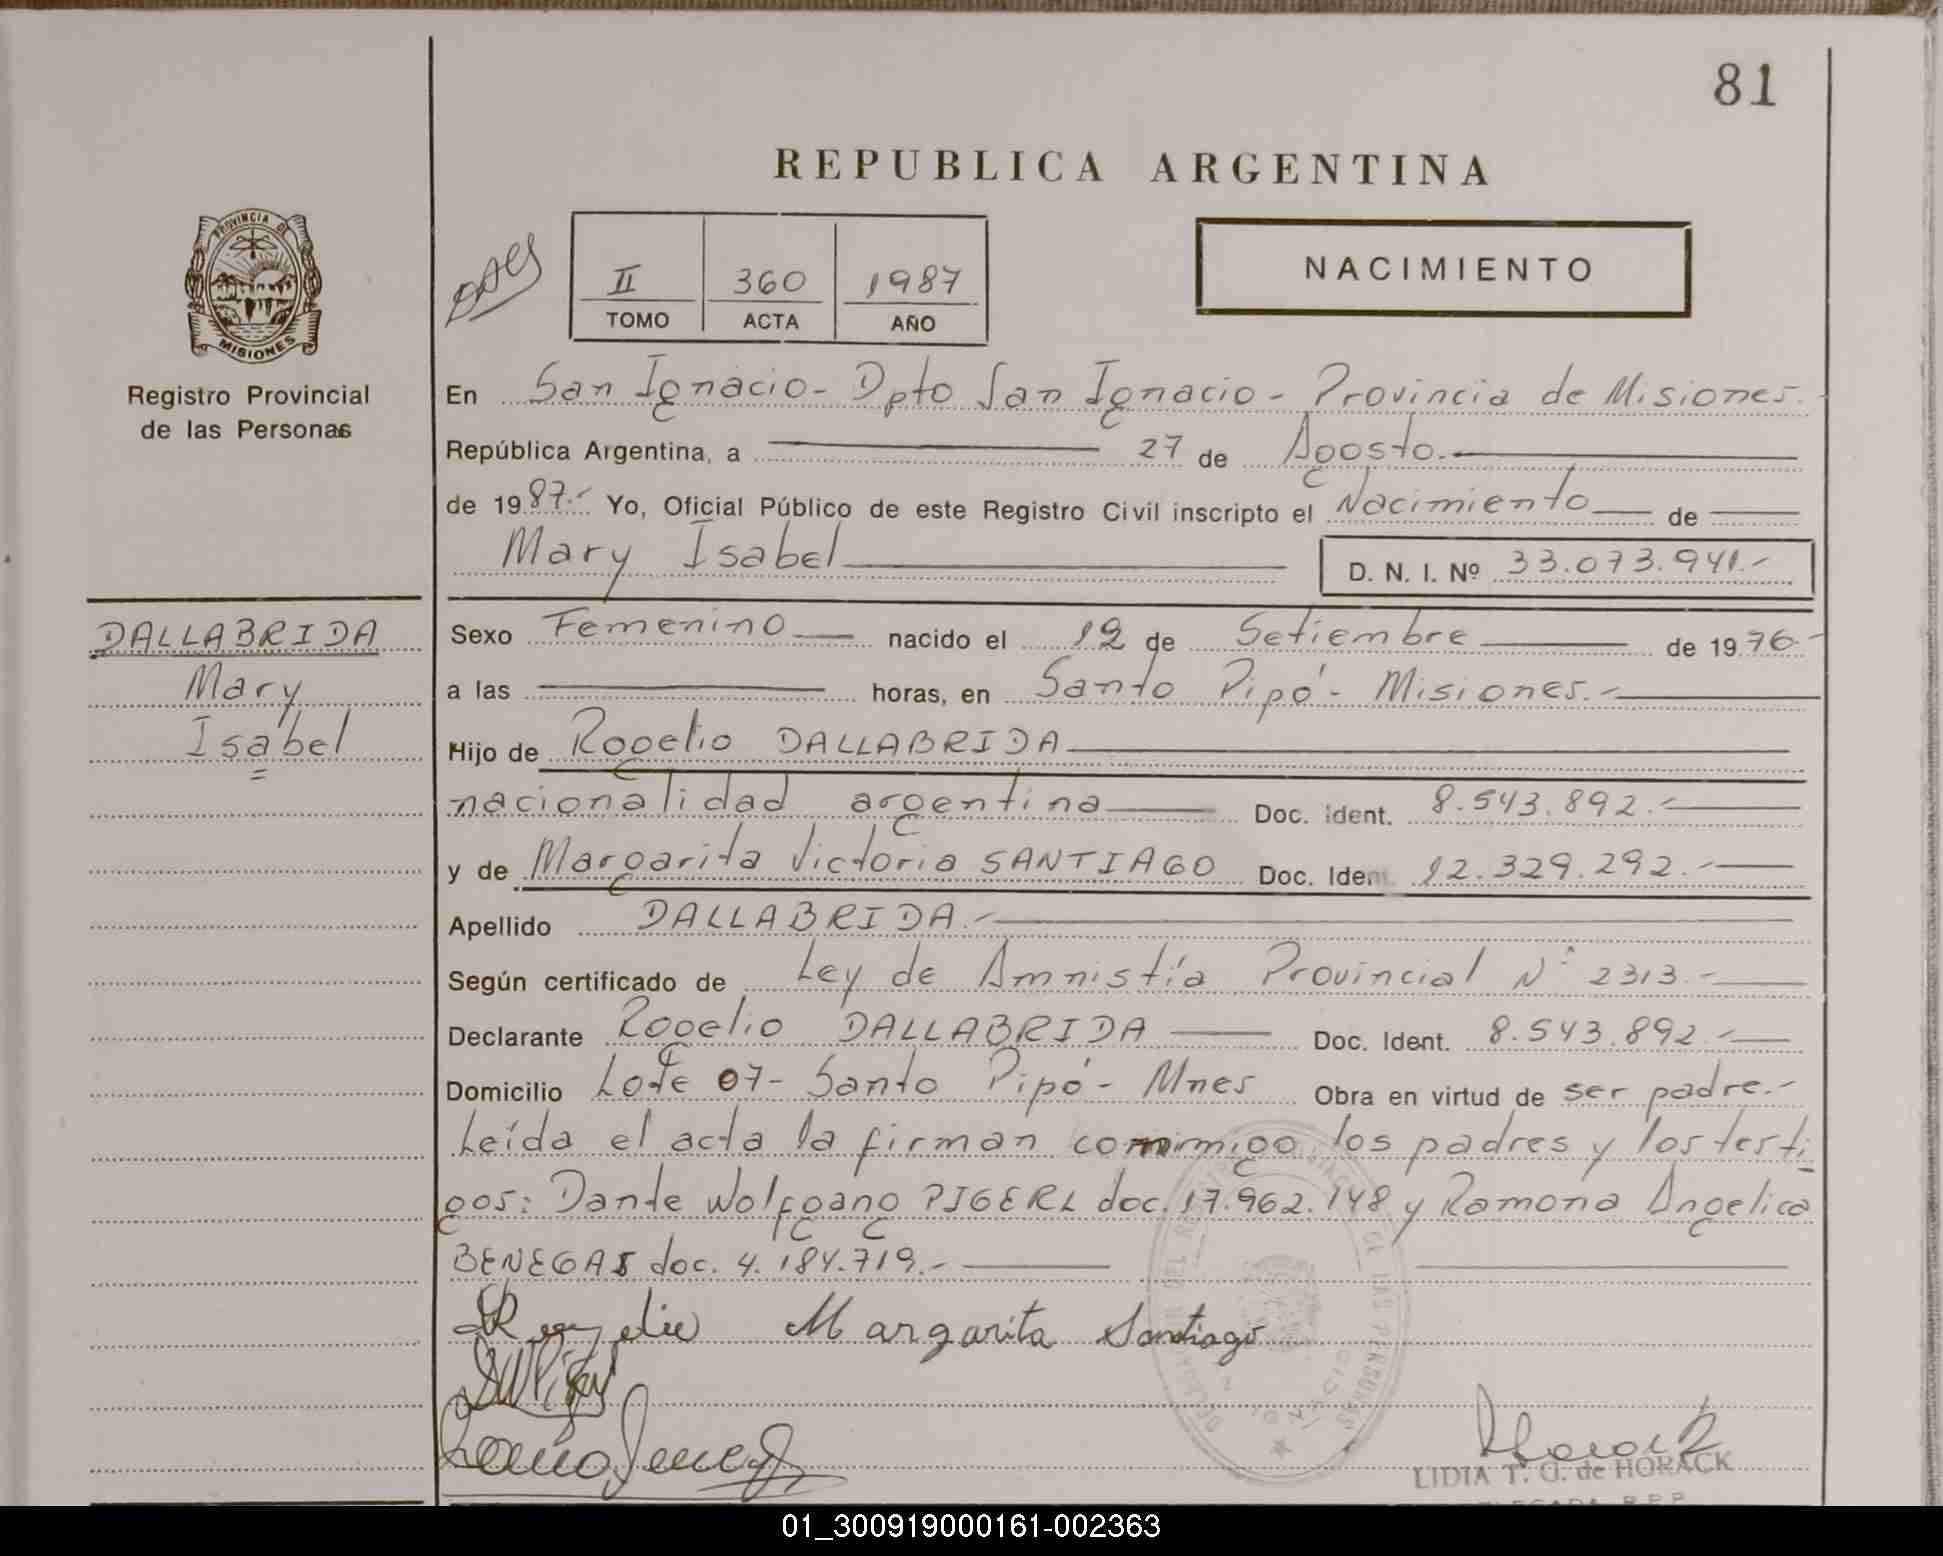 81
REPUBLICA ARGENTINA
PROVINCIA DE
MISIONES
Registro Provincial
de las Personas
II 360 1987
TOMO ACTA AÑO
NACIMIENTO
En San Ignacio - Dpto San Ignacio - Provincia de Misiones.
República Argentina, a 27 de Agosto.
de 1987.- Yo, Oficial Público de este Registro Civil inscripto el Nacimiento de
Mary Isabel D. N. I. Nº 33.073.941.-
DALLABRIDA
Mary
Isabel
Sexo Femenino nacido el 12 de Setiembre de 1976.-
a las horas, en Santo Pipó - Misiones.-
Hijo de Rogelio DALLABRIDA
nacionalidad argentina Doc. Ident. 8.543.892.-
y de Margarita Victoria SANTIAGO Doc. Ident. 12.329.292.-
Apellido DALLABRIDA.-
Según certificado de Ley de Amnistía Provincial Nº 2313.-
Declarante Rogelio DALLABRIDA Doc. Ident. 8.543.892.-
Domicilio Lote 07 - Santo Pipó - Mnes Obra en virtud de ser padre.-
Leída el acta la firman conmigo los padres y los testi
gos: Dante Wolfgang PIGERL doc. 17.962.148 y Ramona Angelica
BENEGAS doc. 4.184.719.-
Margarita Santiago
Horack
LIDIA T. G. de HORACK
01_300919000161-002363